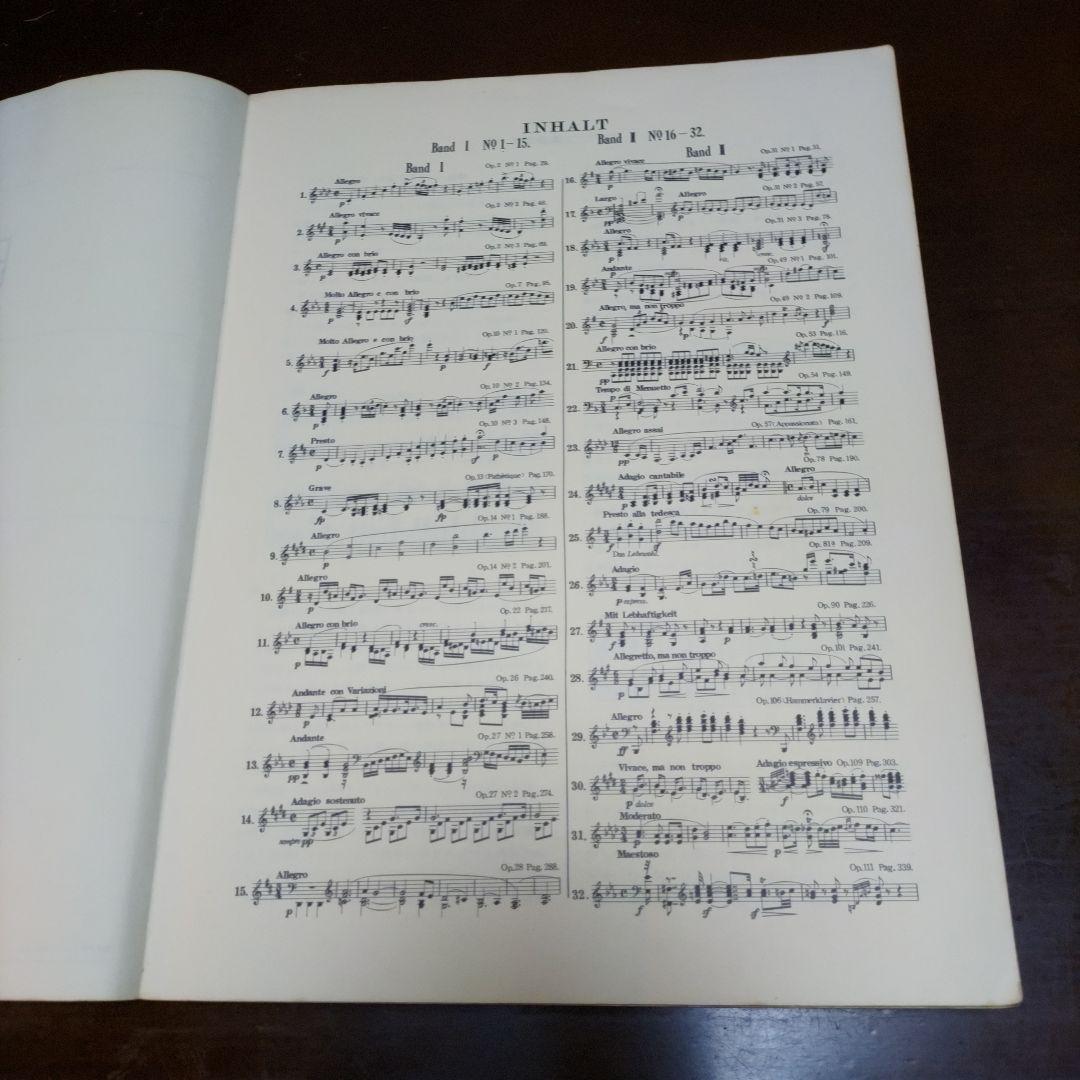 INHALT
Band I Nº 1-15.
Band II Nº 16-32.
Band I
Op.2 Nº 1 Pag. 29.
1.
Allegro
p
Op.2 Nº 2 Pag. 48.
2.
Allegro vivace
p
Op.2 Nº 3 Pag. 69.
3.
Allegro con brio
p
Op.7 Pag. 95.
4.
Molto Allegro e con brio
p
sf
Op.10 Nº 1 Pag. 120.
5.
Molto Allegro e con brio
f
p
f
Op.10 Nº 2 Pag. 134.
6.
Allegro
p
Op.10 Nº 3 Pag. 148.
7.
Presto
p
sf
p
Op.13 (Pathétique) Pag. 170.
8.
Grave
fp
fp
Op.14 Nº 1 Pag. 188.
9.
Allegro
p
Op.14 Nº 2 Pag. 201.
10.
Allegro
p
Op. 22 Pag. 217.
11.
Allegro con brio
cresc.
p
Op. 26 Pag. 240.
12.
Andante con Variazioni
p
Op.27 Nº 1 Pag. 258.
13.
Andante
pp
Op.27 Nº 2 Pag. 274.
14.
Adagio sostenuto
sempre pp
Op.28 Pag. 288.
15.
Allegro
p
Band II
Op.31 Nº 1 Pag. 31.
16.
Allegro vivace
p
Op.31 Nº 2 Pag. 57.
17.
Largo
Allegro
pp
p
Op.31 Nº 3 Pag. 78.
18.
Allegro
p
rit.
cresc.
sf
Op.49 Nº 1 Pag. 101.
19.
Andante
p
Op.49 Nº 2 Pag. 109.
20.
Allegro, ma non troppo
f
p
f
Op. 53 Pag. 116.
21.
Allegro con brio
pp
Op. 54 Pag. 149.
22.
Tempo di Menuetto
p
Op. 57 (Appassionata) Pag. 161.
23.
Allegro assai
pp
Op. 78 Pag. 190.
24.
Adagio cantabile
Allegro
p
dolce
Op. 79 Pag. 200.
25.
Presto alla tedesca
f
sf
Op. 81a Pag. 209.
26.
Das Lebewohl.
Adagio
p express.
Op. 90 Pag. 226.
27.
Mit Lebhaftigkeit
f
p
Op. 101 Pag. 241.
28.
Allegretto, ma non troppo
p
Op. 106 (Hammerklavier) Pag. 257.
29.
Allegro
ff
30.
Vivace, ma non troppo
Adagio espressivo Op. 109 Pag. 303.
p dolce
f
Op. 110 Pag. 321.
31.
Moderato
p
p
Op. 111 Pag. 339.
32.
Maestoso
f
sf
sf